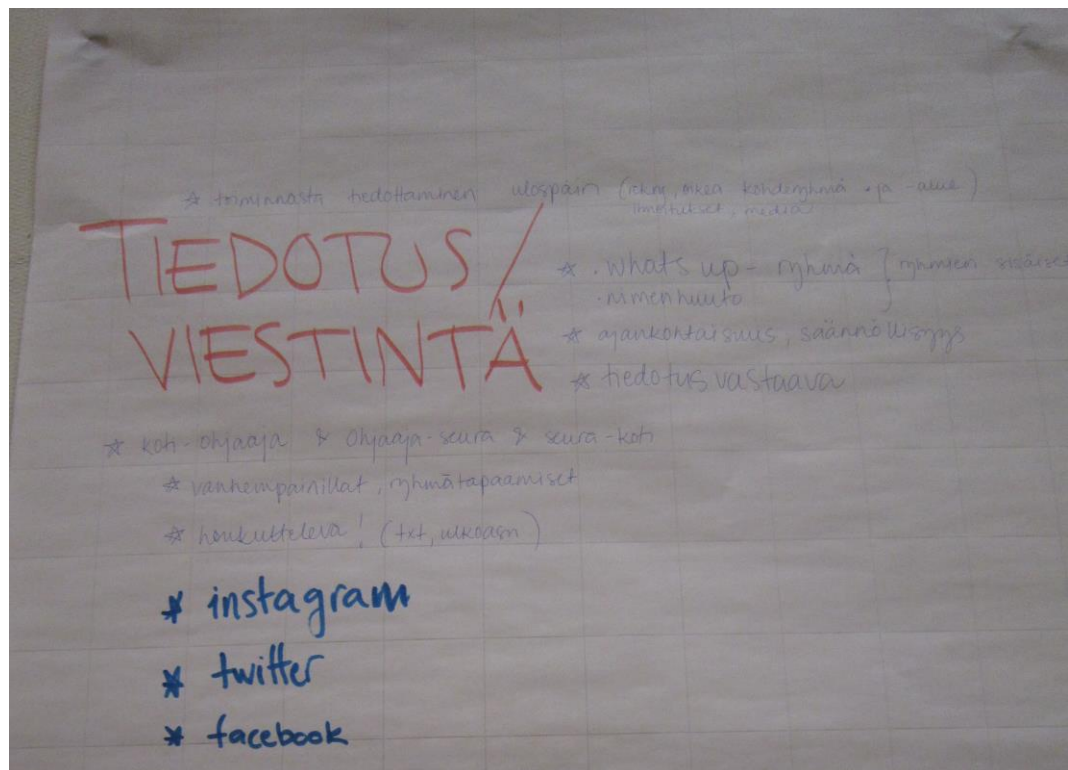 * toiminnasta tiedottaminen ulospäin (oikea kohderyhmä - ja -alue)
ilmoitukset, media
TIEDOTUS/
VIESTINTÄ
* . whats up - ryhmä } ryhmien sisäiset
. nimenhuuto
* ajankohtaisuus, säännöllisyys
* tiedotusvastaava
* koti-ohjaaja & ohjaaja-seura & seura-koti
* vanhempainillat, ryhmätapaamiset
* houkutteleva! (txt, ulkoasu)
* instagram
* twitter
* facebook